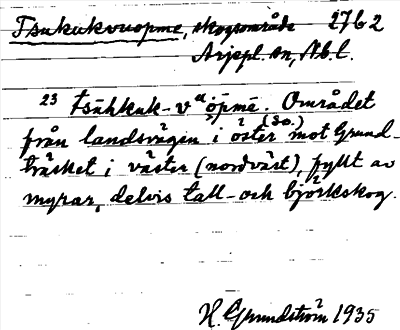 Tsukukvuopme, skogsområde 27b2
Arjepl. sn, Nb.l.
23 tsuhkuk-vᵘopmē. Området
från landsvägen i öster (so.) mot Grund-
träsket i väster (nordväst), fyllt av
myrar, delvis tall- och björkskog.
H. Grundström 1935